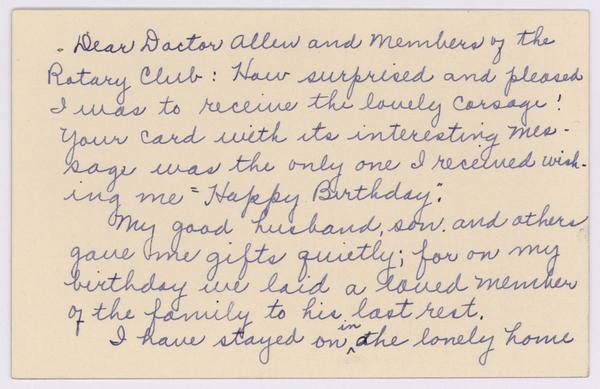 Dear Doctor Allen and Members of the
Rotary Club: How surprised and pleased
I was to receive the lovely corsage!
Your card with its interesting mes-
sage was the only one I received wish-
ing me "Happy Birthday".
My good husband, son. and others
gave me gifts quietly; for on my
birthday we laid a loved member
of the family to his last rest.
I have stayed on in the lonely home